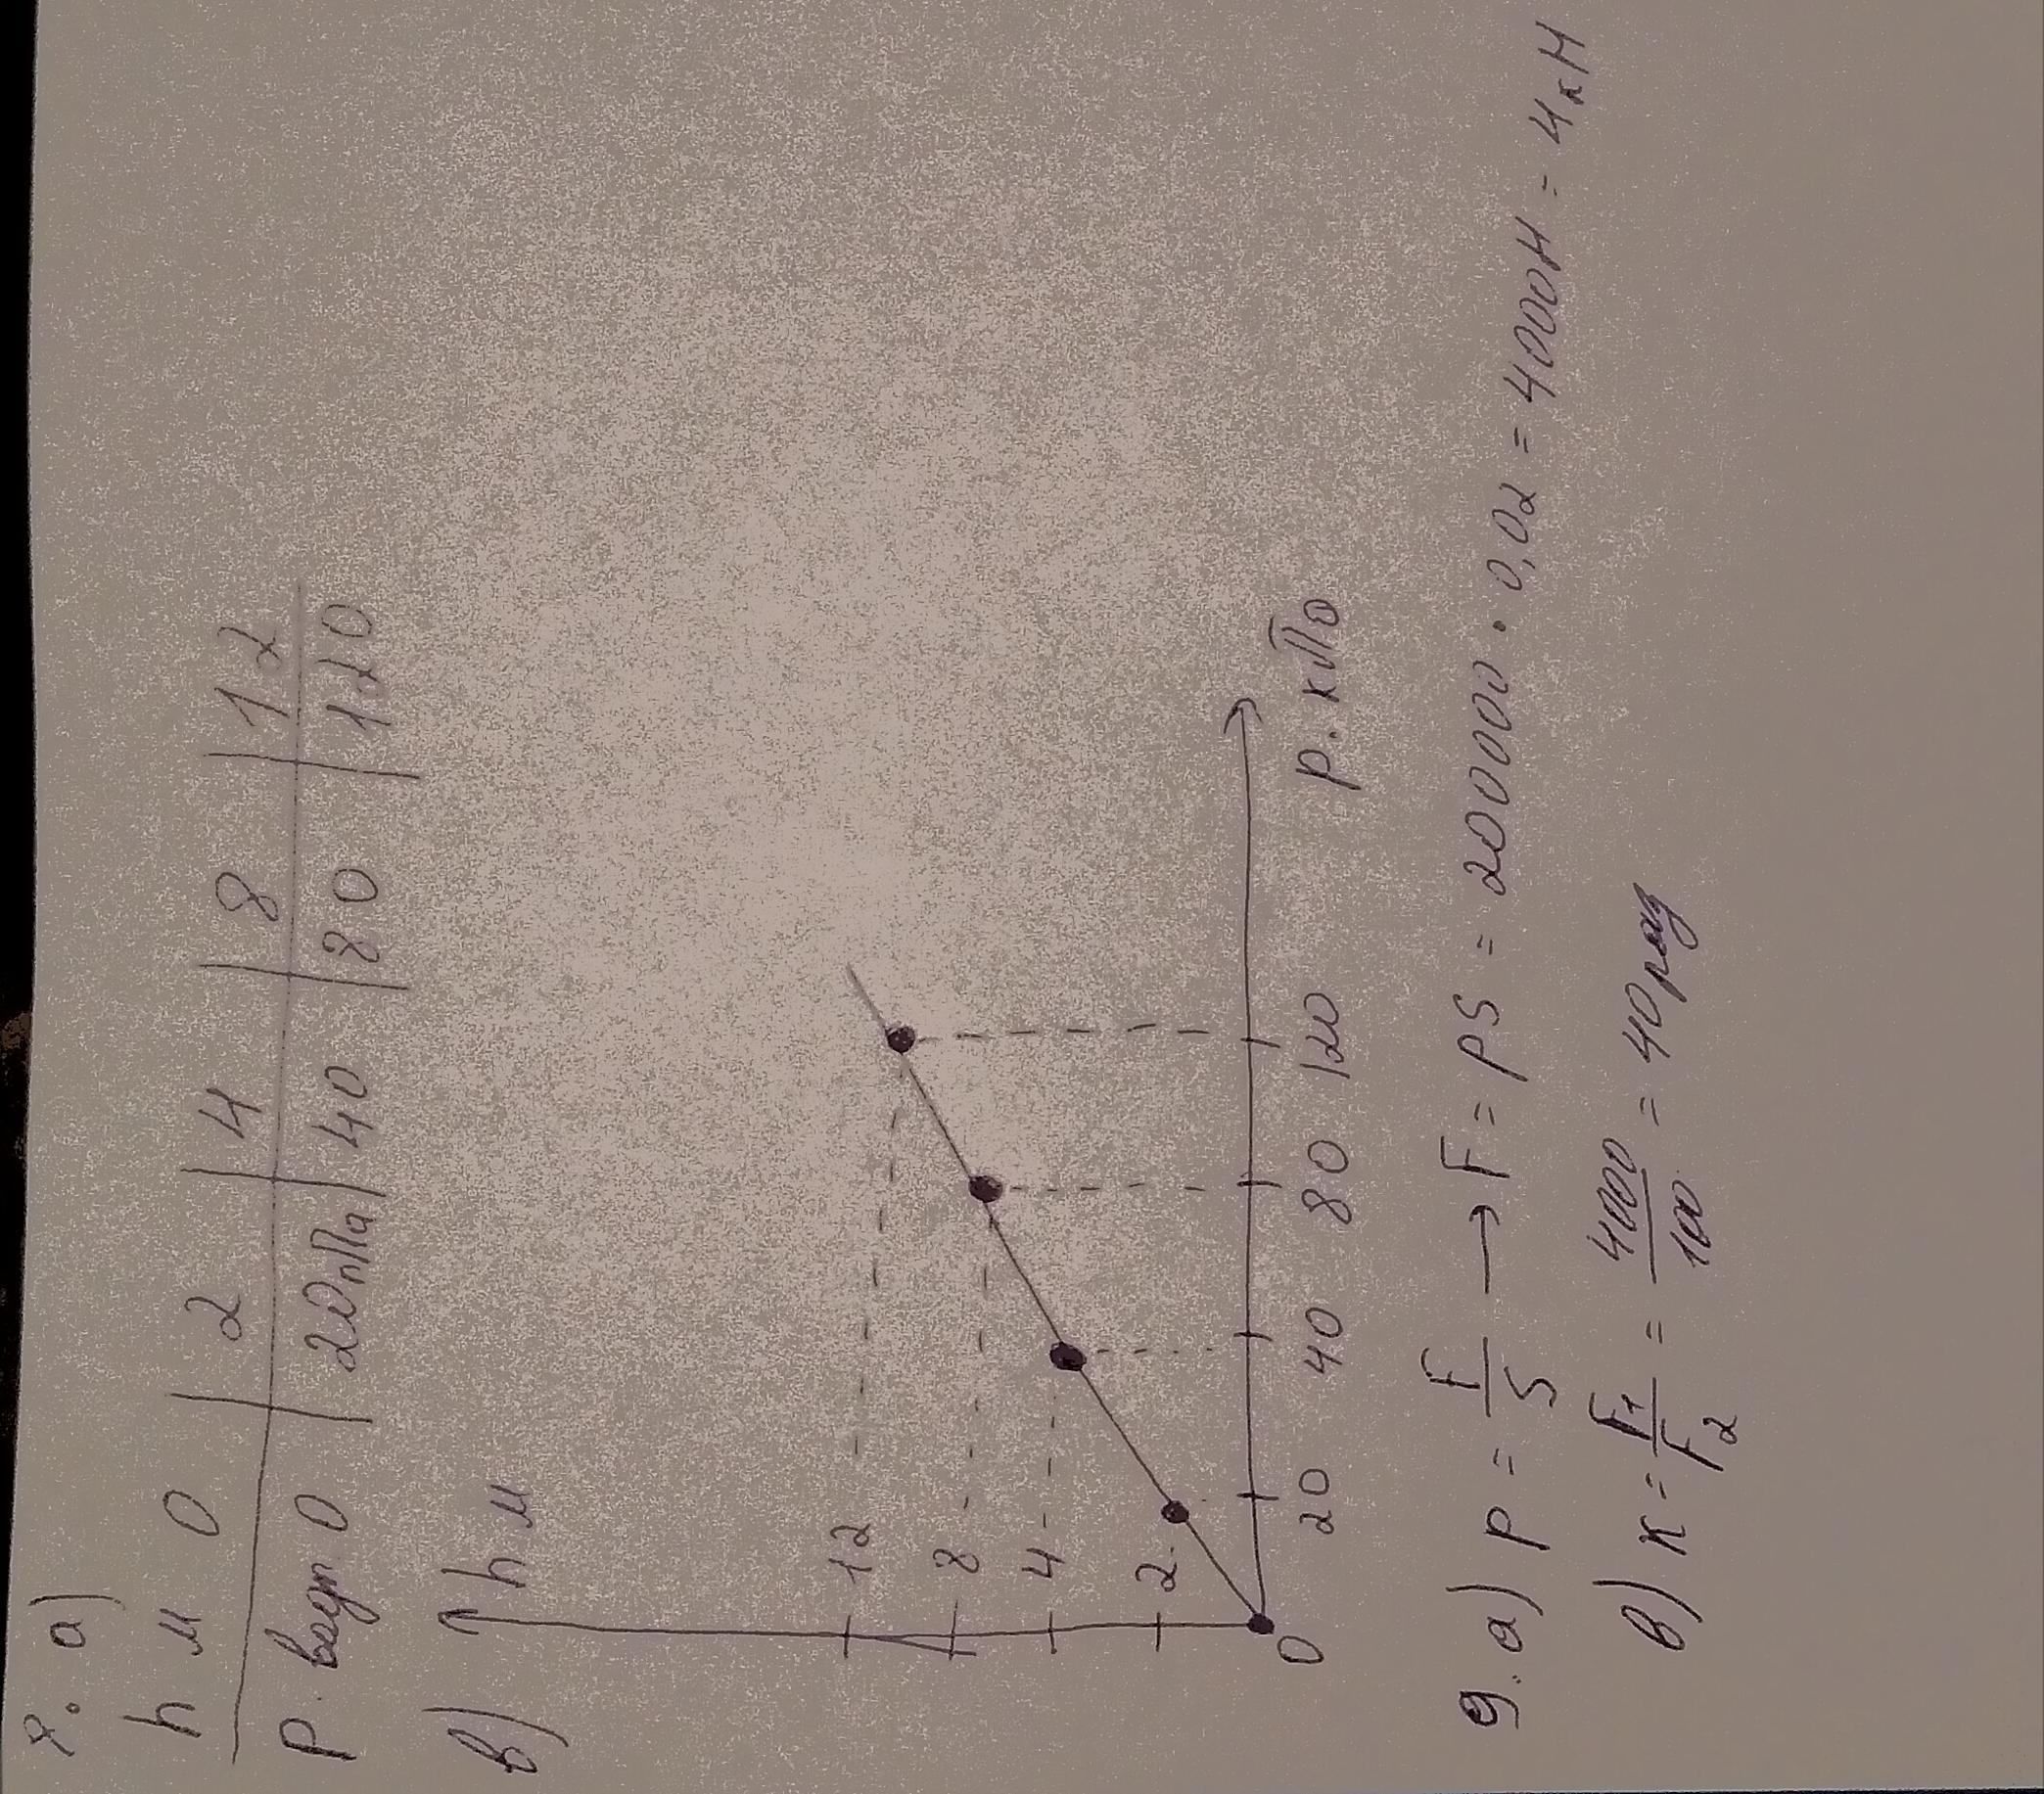 8. a)
h м 0 | 2 | 4 | 8 | 12
P 0 | 20 кПа | 40 | 80 | 120
в)
h м
12
8
4
2
0 20 40 80 120
p. кПа
9. a) P = F/S → F = PS = 200000 · 0,02 = 4000Н = 4кН
в) к = F1/F2 = 4000/100 = 40 раз